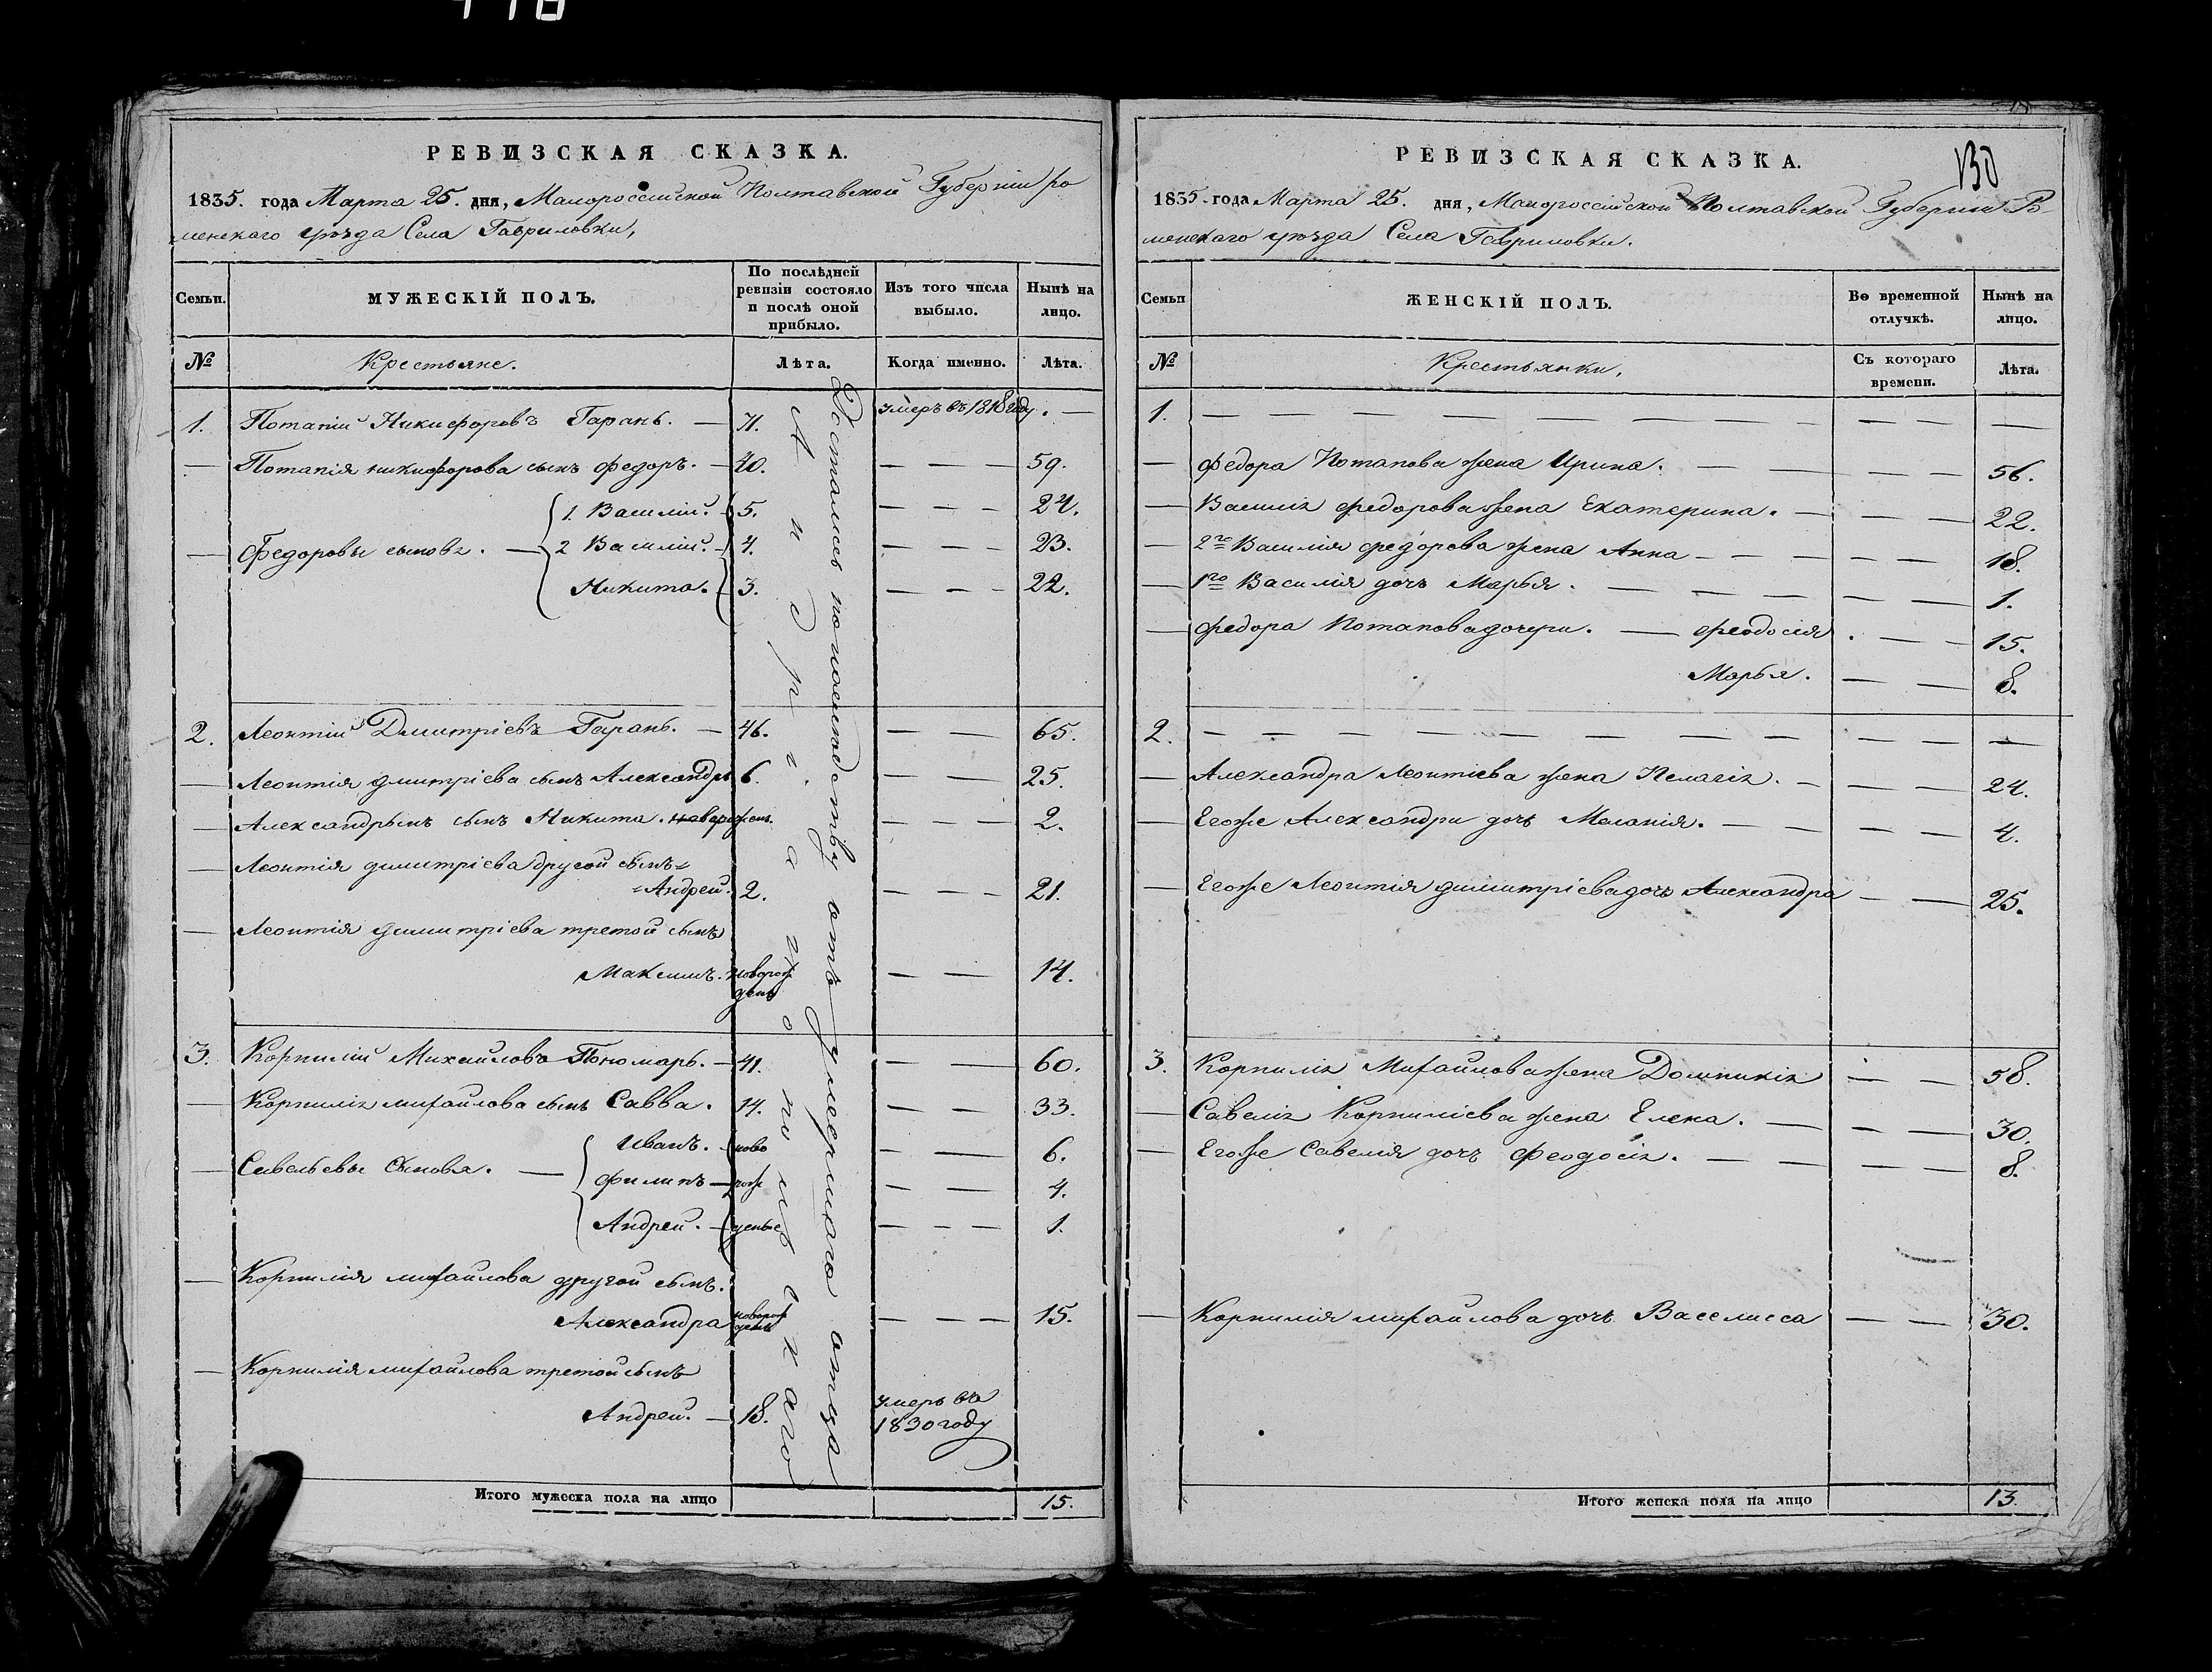 РЕВИЗСКАЯ СКАЗКА.
1835. года Марта 25. дня, Малороссійской Полтавской Губерніи Ро
менскаго уѣзда Села Гавриловки,
Семьи.
МУЖЕСКІЙ ПОЛЪ.
По послѣдней ревизіи состояло и послѣ оной прибыло.
Изъ того числа выбыло.
Нынѣ на лицо.
№ Крестьяне. Лѣта. Когда именно. Лѣта.
1. Потапій Никифоровъ Гарань. — 71. умеръ въ 1818 году. —
— Потапія никифорова сынъ Федоръ. — 40. — — — 59.
1. Василій. 5. — — — 24.
— Федоровы сыновя. — 2 Василій. 4. — — — 23.
Никита. 3. — — — 22.
2. Леонтій Дмитріевъ Гарань. — 46. — — 65.
— Леонтія дмитріева сынъ Александръ 6. — — 25.
— Александрынъ сынъ Никита. новорожден. — — — 2.
— Леонтія димитріева другой сынъ
Андрей. 2. — — — 21.
— Леонтія димитріева третой сынъ
Максимъ. новорож
денъ — — 14.
3. Корнилій Михайловъ Пономарь. — 41. — — 60.
— Корнилія михайлова сынъ Савва. 14. — — 33.
Иванъ. ново — — 6.
— Савельевы Сыновья. — Филипъ — рож — — 4.
Андрей. — деные — — — 1.
— Корнилія михайлова другой сынъ.
Александра новорож
денъ — — — 15.
— Корнилія михайлова третой сынъ
Андрей. — 18. умеръ въ
1830 году
Итого мужеска пола на лицо 15.
Достались по наслѣдству отъ умершаго отца
по
РЕВИЗСКАЯ СКАЗКА.
130
1835. года Марта 25. дня, Малороссійской Полтавской Губерніи Ро
менскаго уѣзда Села Гавриловки.
Семьи
ЖЕНСКІЙ ПОЛЪ.
Во временной отлучкѣ.
Нынѣ на лицо.
№ Крестьянки, Съ котораго времени. Лѣта.
1. — — — — — — — — —
— Федора Потапова жена Ирина. — — — — 56.
— Василія федорова жена Екатерина. — — — 22.
— 2го Василія федорова жена Анна — — — — 18.
— 1го Василія дочъ Марья. — — — — — 1.
— Федора Потапова дочери. — Феодосія. — — 15.
Марья. — — 8.
2. — — — — — — — — — —
— Александра Леонтіева жена Пелагія. — — — 24.
— Егоже Александра дочъ Меланія. — — — — 4.
— Егоже Леонтія димитріева дочъ Александра — — 25.
3. Корнилія Михайлова жена Домникія — — 58.
— Савелія Корниліева жена Елена. — — — 30.
— Егоже Савелія дочъ Феодосія. — — — — 8.
— Корнилія михайлова дочъ Васелисса — — 30.
Итого женска пола на лицо 13.